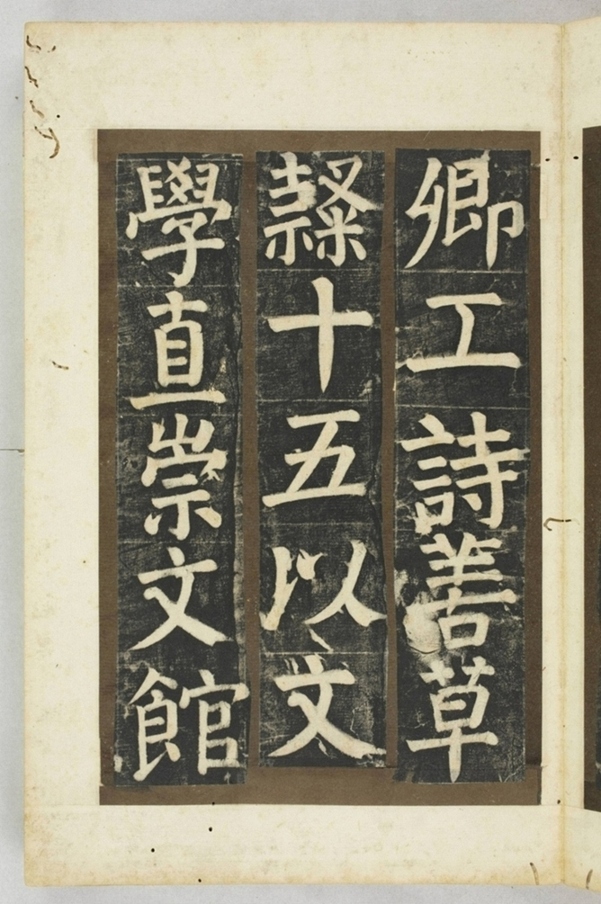 卿工詩善草
隷十五以文
學直崇文館